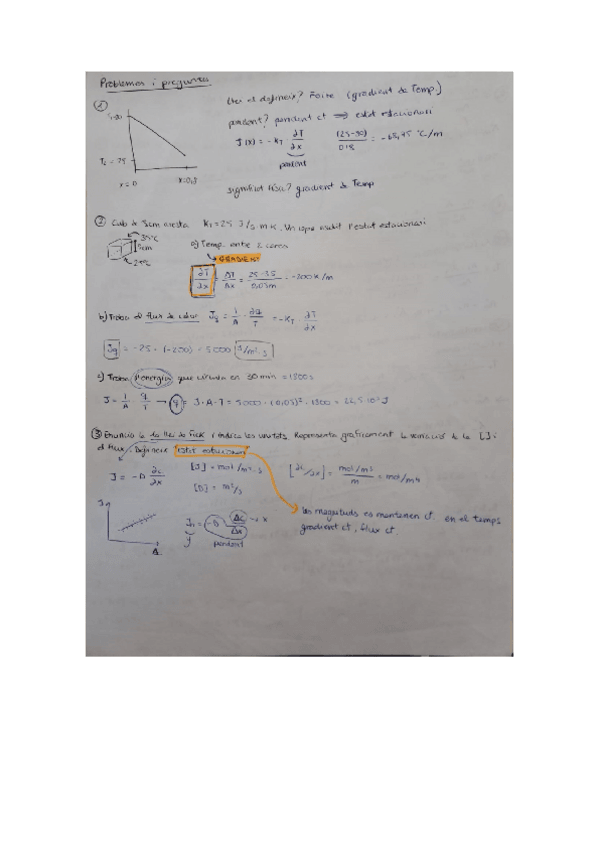 Problemes i preguntes
①
Llei el defineix? Faire (gradient de Temp.)
pendent? pendent ct ⟹ estat estacionari
J(x) = -K_T · ∂T/∂x
pendent
T_2 = 25
x = 0
significat físic? gradient de Temp
② Cub de 5cm aresta K_T = 25 J/s m K. Un cop assolit l'estat estacionari
35ºC
5cm
a) Temp. entre 2 cares
GRADIENT
∂T/∂x = ΔT/Δx = = -200 K/m
b) Troba el flux de calor J_q = 1/A · ∂q/T = -K_T · ∂T/∂x
J_q = -25 · (-200) = 5000 J/m²·s
c) Troba l'energia que circula en 30 min = 1800s
J = 1/A · q/T → q = J·A·T = 5000 · (0,05)² · 1800 = 22,5·10³ J
③ Enuncia la 1a llei de Fick i indica les unitats. Representa graficament la variació de la [ ] i
el flux. Defineix estat estacionari
J = -D ∂c/∂x
[J] = mol/m²·s
[∂c/∂x] = mol/m³ / m = mol/m4
[D] = m²/s
les magnituds es mantenen ct. en el temps
gradient ct, flux ct.
J_n = -D Δc/Δx → x
y
pendent